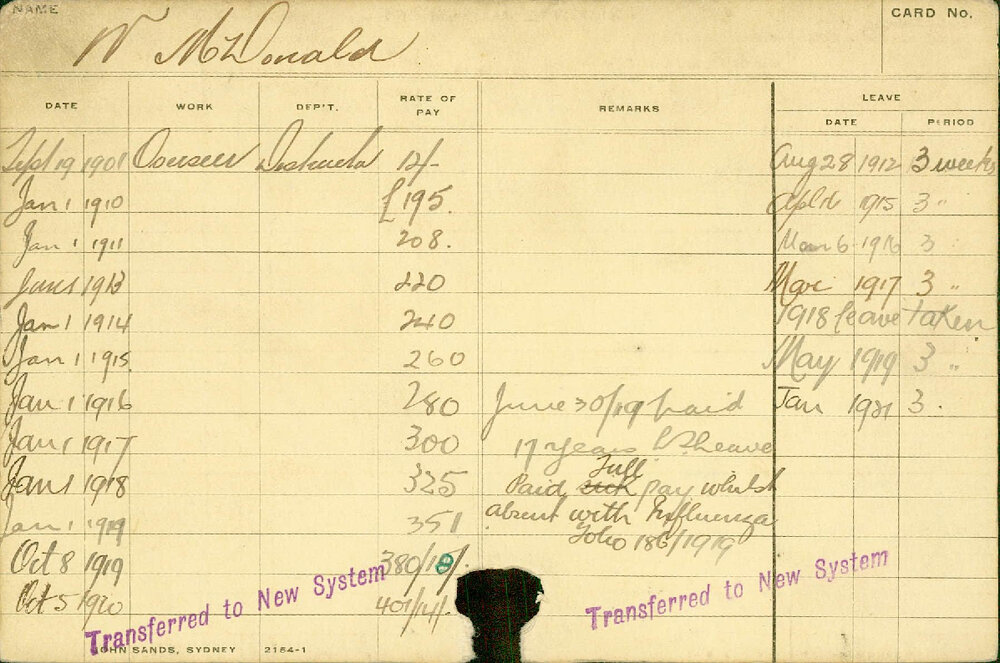 NAME
W McDonald
CARD No.
DATE WORK DEP'T. RATE OF PAY REMARKS LEAVE
DATE PERIOD
Sept 19 1901 Overseer 12/- Aug 28 1912 3 weeks
Jan 1 1910 £195. Apl 16 1915 3 "
Jan 1 1911 208. Mar 6 1916 3
Jan 1 1913 220 Mar 1917 3 "
Jan 1 1914 240 1918 leave taken
Jan 1 1915 260 May 1919 3 "
Jan 1 1916 280 June 30/19 paid Jan 1921 3.
Jan 1 1917 300 17 years Leave
Jan 1 1918 325 Paid sick Full pay whilst
Jan 1 1919 351 absent with Influenza
Folio 186/1919
Oct 8 1919 380/18/.
Oct 5 1920 401/14/.
Transferred to New System
Transferred to New System
JOHN SANDS, SYDNEY 2164-1